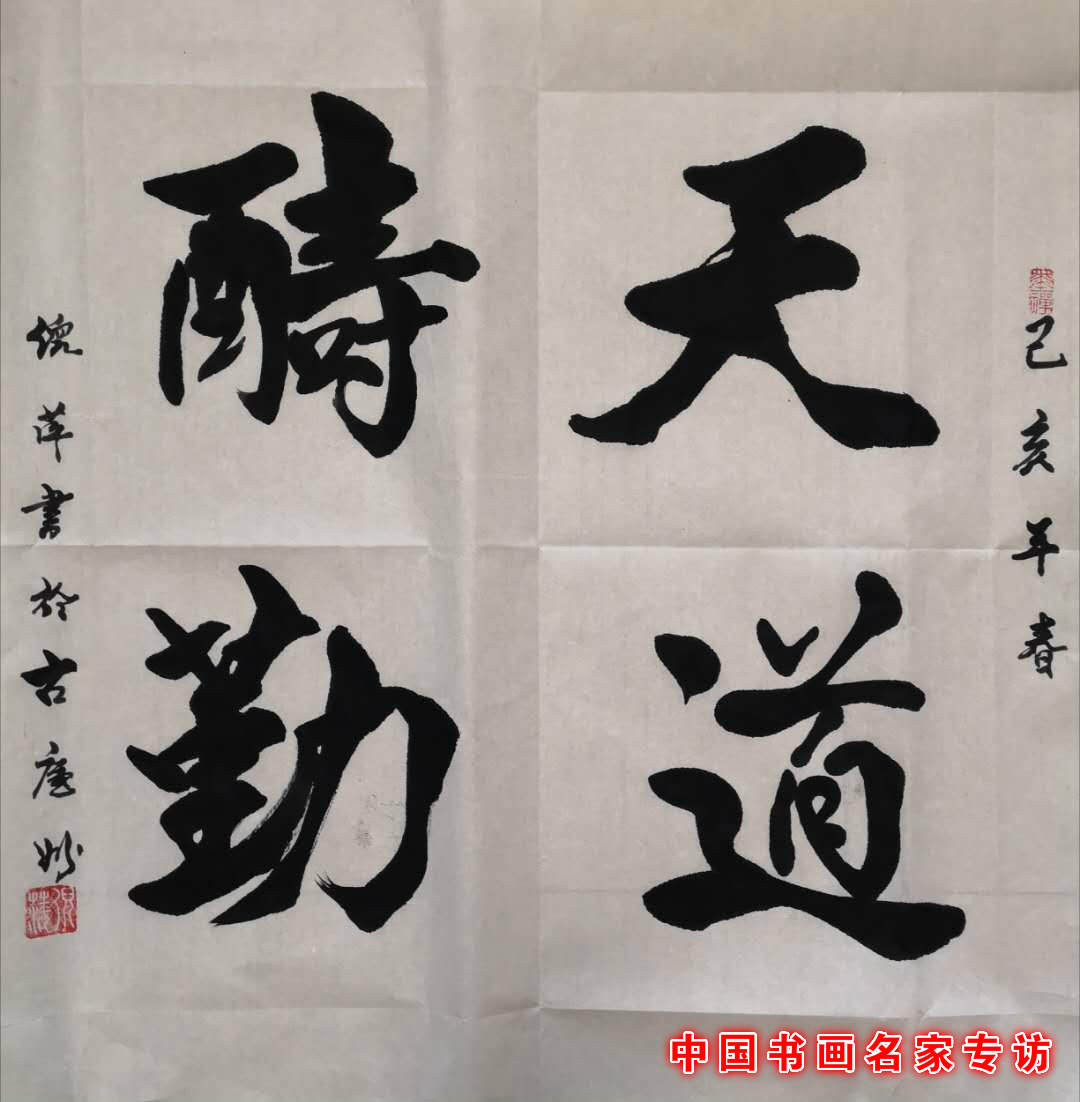 己亥年春
天道
酬勤
倪萍書於古唐
中国书画名家专访